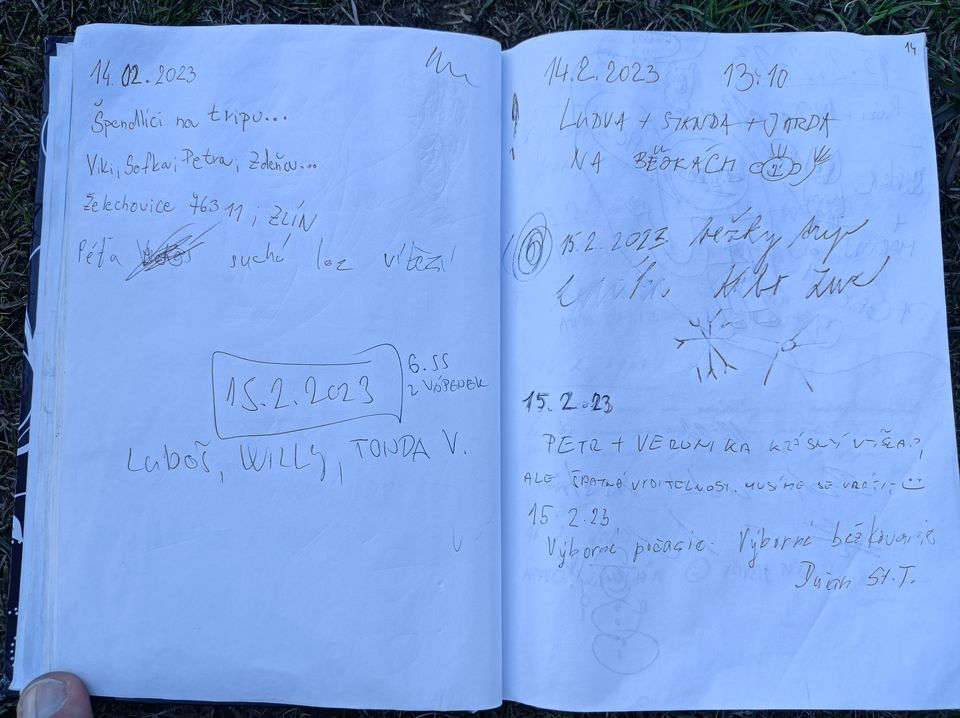 14.02.2023
Špendlíci na tripu...
Viki, Sofka, Petra, Zdeňa...
Želechovice 763 11, ZLÍN
Péťa suchá vítězí
15.2.2023
6.55
Z VÁPENEK
Luboš, WILLY, TONDA V.
14
14.2.2023 13:10
LUDVA + STANDA + JARDA
NA BĚŽKÁCH
15.2.2023 běžky trip
15.2.23
PETR + VERONIKA KRÁSNÝ VÝŠLAP,
ALE ŠPATNÁ VIDITELNOST. MUSÍME SE VRÁTIT
15.2.23
Výborné počasie. Výborné bežkovanie
Dušan St.T.